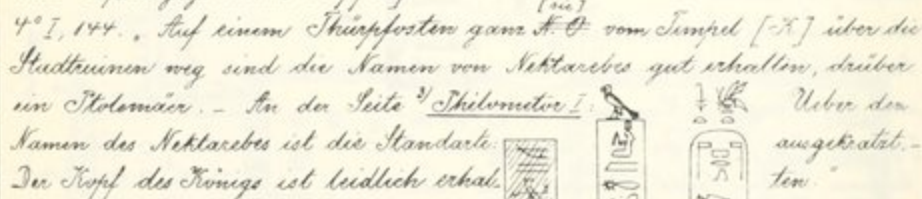 [sic]
4° I, 144. „Auf einem Thürpfosten ganz N. O. vom Tempel [-K] über die
Stadtruinen weg sind die Namen von Nektarebes gut erhalten, drüber
ein Ptolemäer. – An der Seite ³⁾ Philometor I: Ueber den
Namen des Nektarebes ist die Standarte: ausgekratzt. –
Der Kopf des Königs ist leidlich erhal- ten."